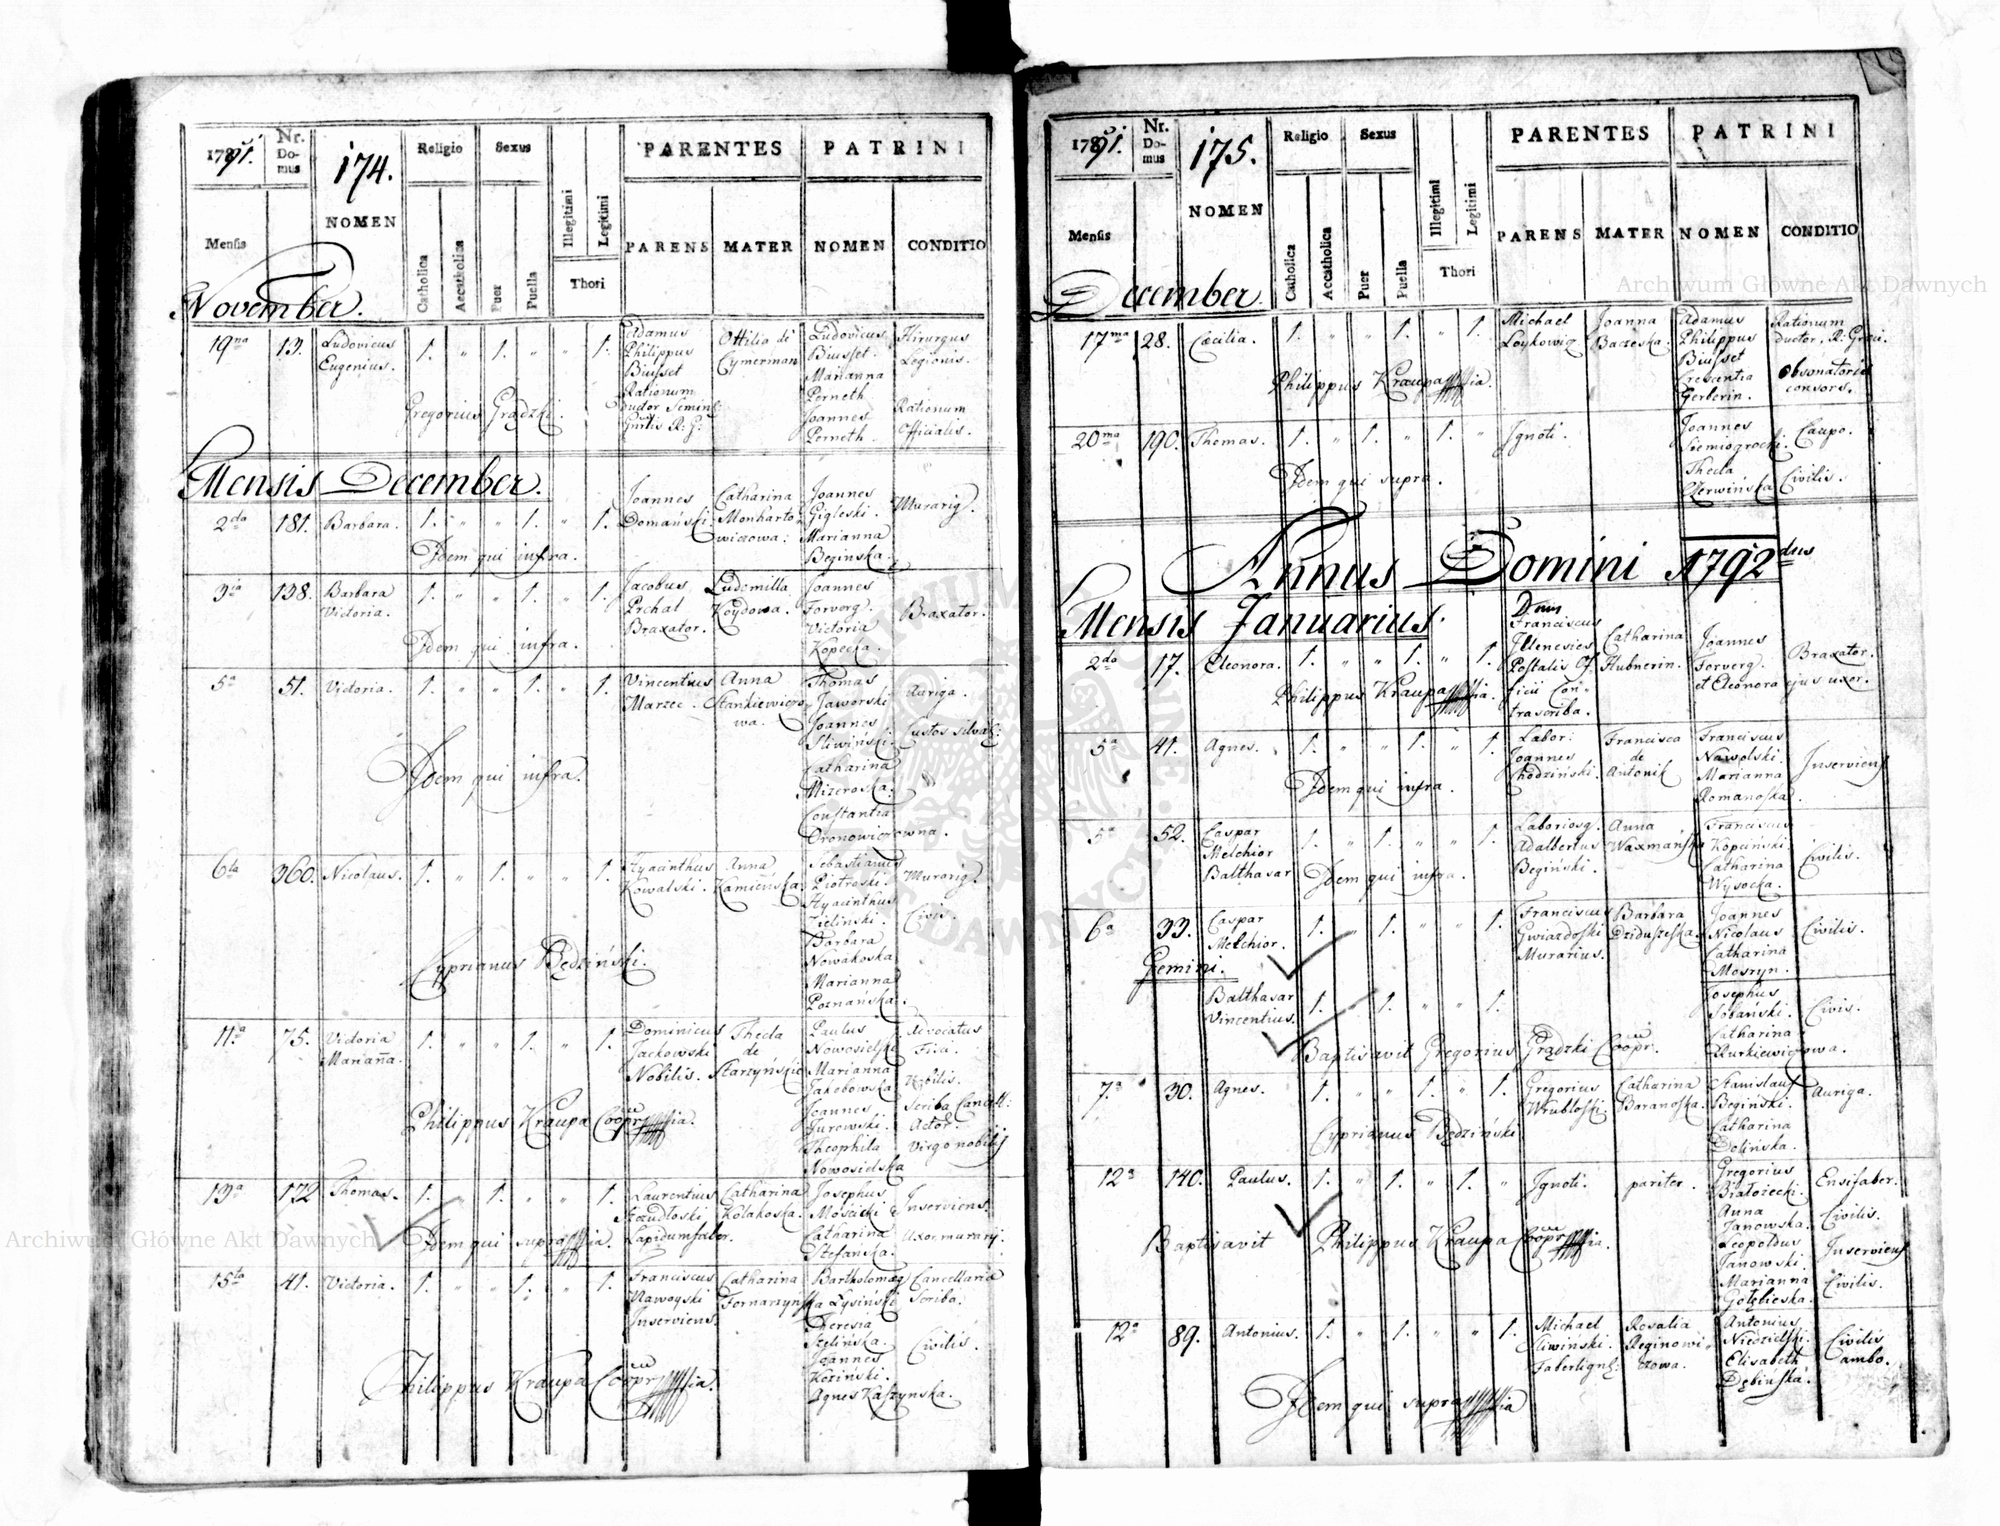 1791.
Nr. Domus
174.
NOMEN
Religio
Sexus
PARENTES
PATRINI
Mensis
Catholica
Accatholica
Puer
Puella
Illegitimi
Legitimi
Thori
PARENS
MATER
NOMEN
CONDITIO
November.
19na 13. Ludovicus 1. " 1. " " 1. Adamus Ottilia de Ludovicus Chirurgus
Eugenius. Philippus Cymerman Biusset. Legionis.
Biusset Marianna
Rationum Perneth
Gregorius Grądzki. Joannes Rationum
Perneth. Officialis.
Mensis December.
2da 181. Barbara. 1. " " 1. " 1. Joannes Catharina Joannes Murarig.
Domański. Monharto Gigleski.
wiczowa. Marianna
Idem qui infra. Begińska.
3ia 138. Barbara 1. " " 1. " 1. Jacobus Ludomilla Joannes
Victoria. Prchal Koydowa. Forverg. Braxator.
Braxator. Victoria
Idem qui infra. Kopecka.
5a 51. Victoria. 1. " " 1. " 1. Vincentius Anna Thomas Auriga.
Marzec. Stankiewiczo Jaworski
wa. Joannes Custos silva:
Sliwiński.
Idem qui infra. Catharina
Mizeroska.
Constantia
Dronowiczowna.
6ta 360. Nicolaus. 1. " 1. " " 1. Hyacinthus Anna Sebastianus
Kowalski. Kamieńska. Piotroski. Murarig.
Hyacinthus
Zieliński. Civis.
Barbara
Cyprianus Będziński. Nowakoska
Marianna
Poznańska.
11a 75. Victoria 1. " " 1. " 1. Dominicus Thecla Paulus Advocatus
Mariana. Jackowski de Nowosielski Fixi.
Nobilis. Starzyńskie Marianna
Jakobowska Nobilis.
Philippus Kraupa Coopr. Joannes Scriba Cancell:
Jurowski. Actor.
Theophila Virgo nobilis
Nowosielska
13a 172 Thomas. 1. " 1. " " 1. Laurentius Catharina Josephus Inserviens.
Szczudłoski Kolakoska. Mościcki
Idem qui supra Lapidumfaber. Catharina Uxor murarij.
Stefańska.
15ta 41. Victoria. 1. " " 1. " 1. Franciscus Catharina Bartholomæg Cancellariæ
Nawoyski Tornarzynska Łysiński Scriba.
Inserviens. Theresia
Szelińska. Civilis.
Joannes
Philippus Kraupa Coopr. Koziński.
Agnes Kaszynska.
1791.
Nr. Domus
175.
NOMEN
Religio
Sexus
PARENTES
PATRINI
Mensis
Catholica
Accatholica
Puer
Puella
Illegitimi
Legitimi
Thori
PARENS
MATER
NOMEN
CONDITIO
December.
17ma 28. Cæcilia. 1. " " 1. " 1. Michael Joanna Adamus Rationum
Loykowicz Baczeska. Philippus ductor.
Biusset Obsonatoris
Philippus Kraupa Crescentia consors.
Gerberin.
20ma 190. Thomas. 1. " 1. " 1. " Ignoti. Joannes Caupo.
Siemiogrocki.
Idem qui supra. Thecla Civilis.
Czerwińska
Annus Domini 1792dus
Mensis Januarius.
2da 17. Eleonora. 1. " " 1. " 1. Dnus
Franciscus Catharina Joannes Braxator.
Jelenevics Hubnerin. Forverg.
Postalis Of et Eleonora ejus uxor.
Philippus Kraupa ficii Con"
trascriba.
5a 41. Agnes. 1. " " 1. " 1. Labor: Francisca Franciscus
Joannes de Nawolski. Inserviens
Chodziński. Antonik Marianna
Idem qui infra. Romanoska.
5a 52. Caspar 1. " 1. " " 1. Laboriosg. Anna Franciscus
Melchior Adalbertus Waxmańska Kopciński. Civilis.
Balthasar Begiński. Catharina
Idem qui infra. Wysocka.
6a 33. Caspar 1. " 1. " " 1. Franciscus Barbara Joannes
Melchior. Gwiazdoski Dziduszeska. Nicolaus Civilis.
Gemini. Murarius. Catharina
Mosryn.
Balthasar 1. " 1. " " 1. Josephus Civis.
Vincentius. Sobański.
Baptisavit Gregorius Grądzki Coopr. Catharina
7a 30. Agnes. 1. " " 1. " 1. Gregorius Catharina Stanislaus Auriga.
Wrubloski. Baranoska. Begiński.
Cyprianus Będziński Catharina
Dolińska.
12a 140. Paulus. 1. " 1. " 1. " Ignoti. pariter. Gregorius Ensifaber.
Białozecki.
Anna Civilis.
Janowska.
Baptisavit Philippus Kraupa Coopr. Leopoldus Inserviens
Janowski.
Marianna Civilis.
Gołębieska.
12a 89. Antonius. 1. " 1. " " 1. Michael Rosalia Antonius Civilis
Sliwiński. Reginowi" Niedzielski. ambo.
Faberlign. czowa. Elisabeth
Idem qui supra Dębińska.
Archiwum Główne Akt Dawnych
Archiwum Główne Akt Dawnych